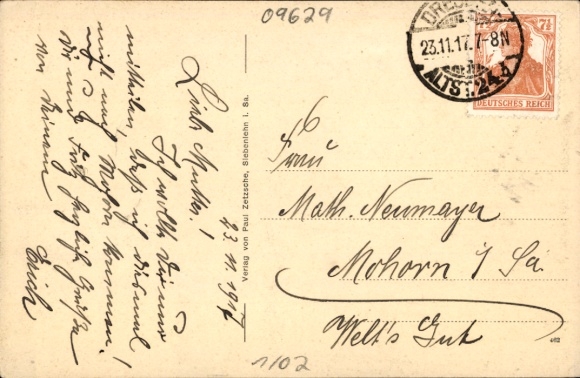 09629
DRESDEN
23.11.17. 7-8N
ALTST. 24
7½
DEUTSCHES REICH
23. 11. 1917
Liebe Mutter!
Ich wollte Dir nur
mitteilen, daß ich diesmal
nicht nach Mohorn komme!
Dir und Frau herzliche Grüße
von Deinem
Erich
Verlag von Paul Zetzsche, Siebenlehn i. Sa.
Frau
Math. Neumayer
Mohorn i/Sa.
Welt's Gut
402
1102